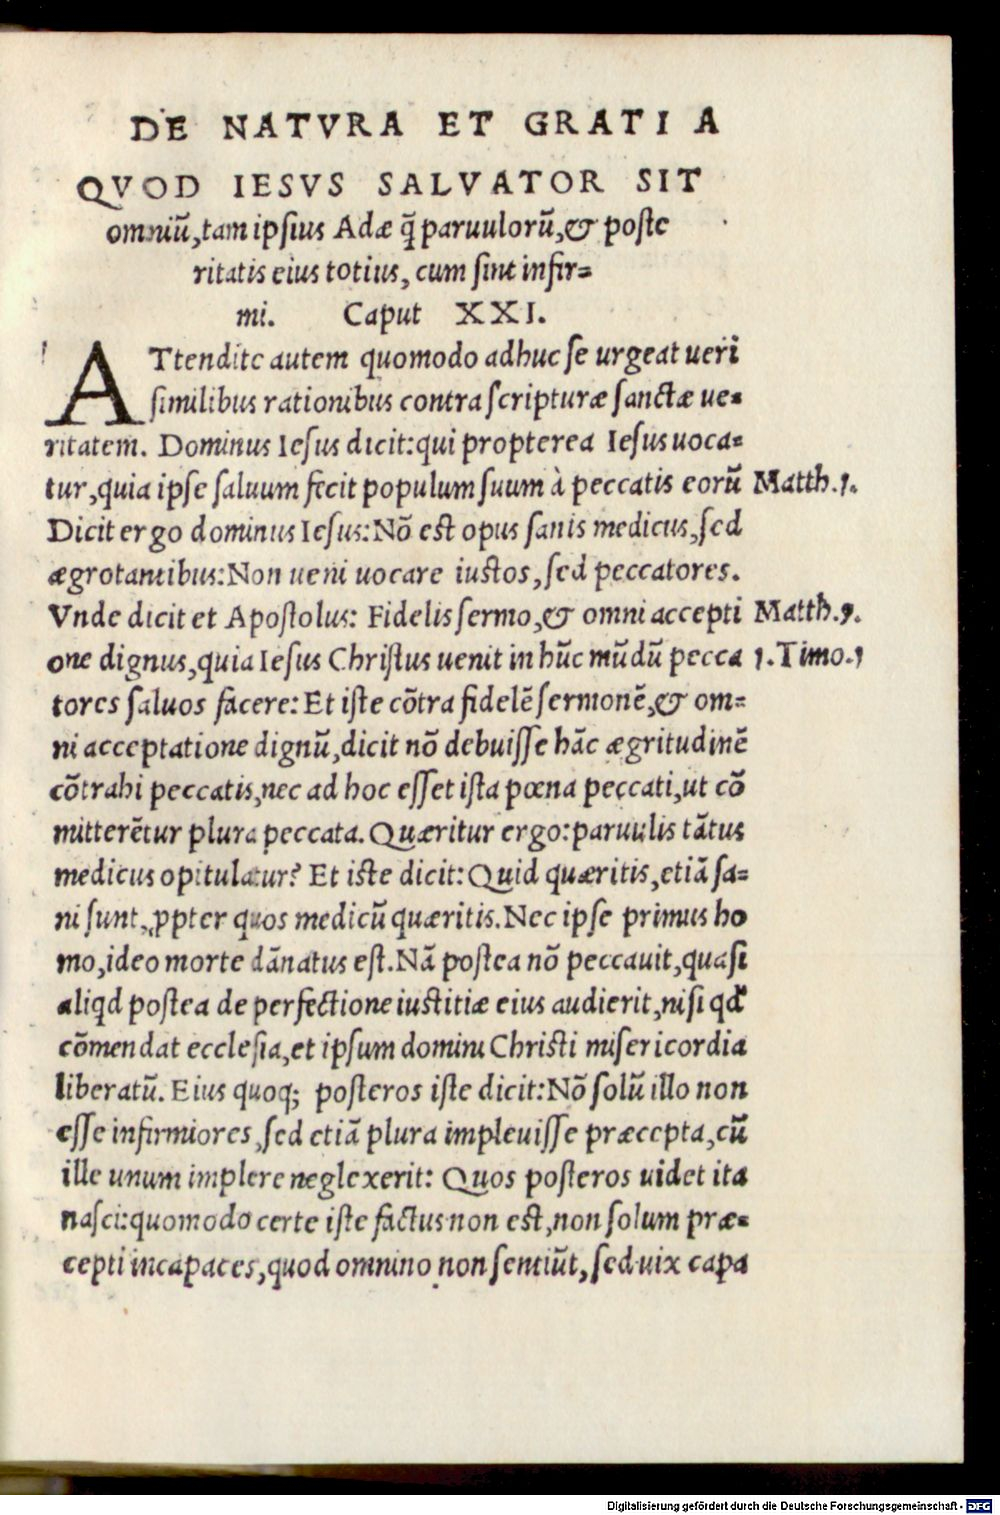 DE NATVRA ET GRATI A
QVOD IESVS SALVATOR SIT
omniũ, tam ipſius Adæ q̃ paruulorũ, & poſte
ritatis eius totius, cum ſint infir=
mi. Caput XXI.
ATtendite autem quomodo adhuc ſe urgeat ueri
ſimilibus rationibus contra ſcripturæ ſanctæ ue=
ritatem. Dominus Ieſus dicit: qui propterea Ieſus uoca=
tur, quia ipſe ſaluum fecit populum ſuum à peccatis eorũ Matth.1.
Dicit ergo dominus Ieſus: Nõ eſt opus ſanis medicus, ſed
ægrotantibus: Non ueni uocare iuſtos, ſed peccatores.
Vnde dicit et Apoſtolus: Fidelis ſermo, & omni accepti Matth.9.
one dignus, quia Ieſus Chriſtus uenit in hũc mũdũ pecca 1.Timo.1
tores ſaluos facere: Et iſte cõtra fidelẽ ſermonẽ, & om=
ni acceptatione dignũ, dicit nõ debuiſſe hãc ægritudinẽ
cõtrahi peccatis, nec ad hoc eſſet iſta pœna peccati, ut cõ
mitterẽtur plura peccata. Quæritur ergo: paruulis tãtus
medicus opitulatur? Et iſte dicit: Quid quæritis, etiã ſa=
ni ſunt, ꝓpter quos medicũ quæritis. Nec ipſe primus ho
mo, ideo morte dãnatus eſt. Nã poſtea nõ peccauit, quaſi
aliqd poſtea de perfectione iuſtitiæ eius audierit, niſi qđ
cõmendat eccleſia, et ipſum domini Chriſti miſericordia
liberatũ. Eius quoq; poſteros iſte dicit: Nõ ſolũ illo non
eſſe infirmiores, ſed etiã plura impleuiſſe præcepta, cũ
ille unum implere neglexerit: Quos poſteros uidet ita
naſci: quomodo certe iſte factus non eſt, non ſolum præ=
cepti incapaces, quod omnino non ſentiũt, ſed uix capa
Digitalisierung gefördert durch die Deutsche Forschungsgemeinschaft - DFG